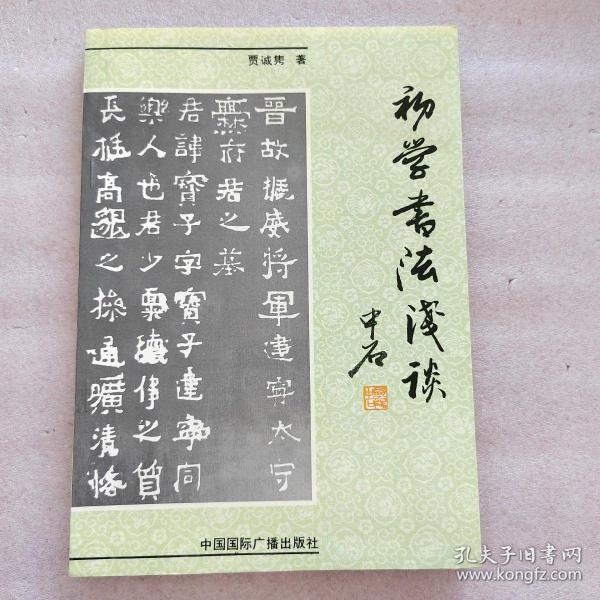 贾诚隽 著
初学書法浅谈
中石
晋故振威将軍建寧太守
爨府君之墓
君諱寳子字寳子建寧同
樂人也君少禀瓌偉之質
長挺高邈之操通曠清恪
中国国际广播出版社
孔夫子旧書网
www.kongfz.com